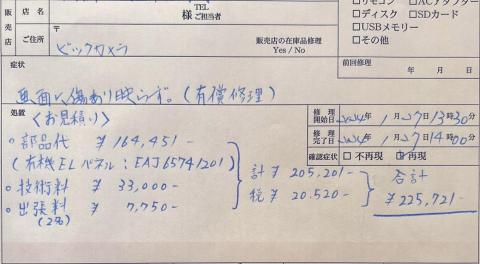 販売店
店名
TEL
様 ご担当者
ご住所
〒
ビックカメラ
販売店の在庫品修理
Yes / No
□リモコン □ACアダプター
□ディスク □SDカード
□USBメモリー
□その他
症状
前回修理
年 月 日
画面に傷あり映らず。(有償修理)
処置
<お見積り>
修理開始日 2024年 1月27日 13時30分
修理完了日 2024年 1月27日 14時00分
確認症状 □不再現 ☑再現
○部品代 ¥164,451-
(有機ELパネル:EAJ65741201)
○技術料 ¥33,000-
○出張料 ¥7,750-
(2名)
計 ¥205,201-
税 ¥20,520-
合計
¥225,721-